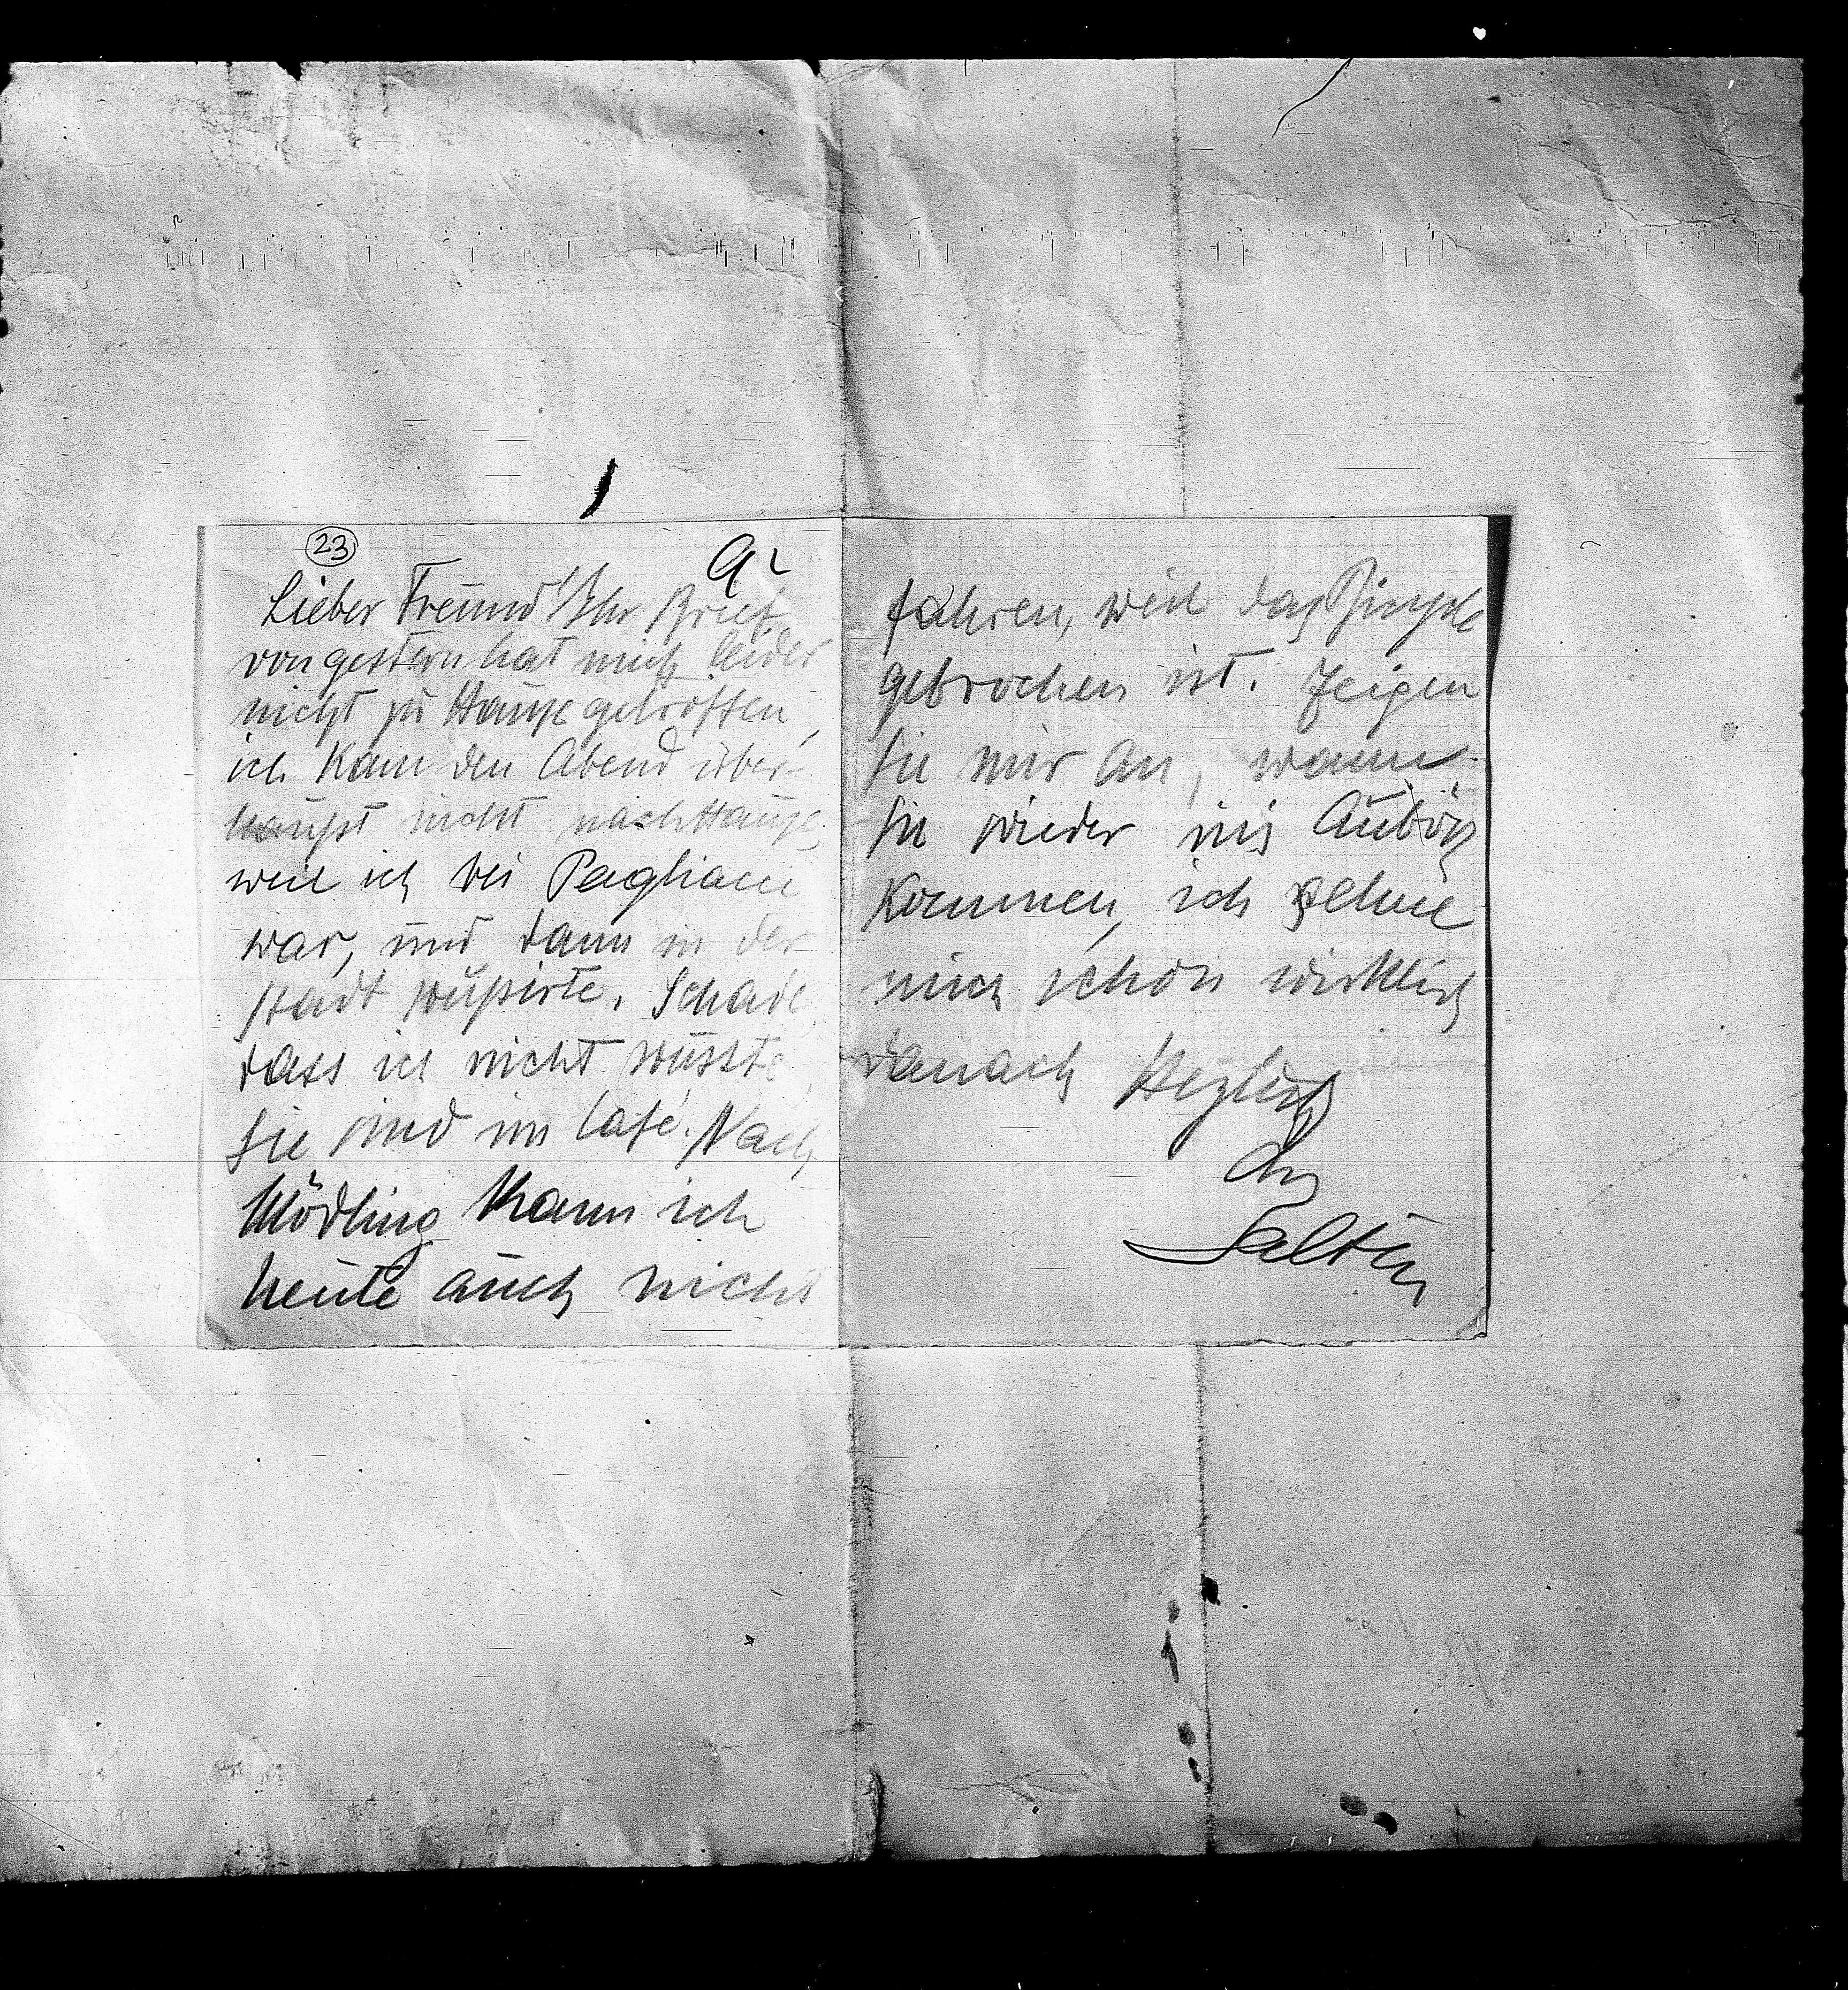 23
Lieber Freund! Ihr Brief
von gestern hat mich leider
nicht zu Hause getroffen,
ich kam den Abend über-
haupt nicht nach Hause,
weil ich bei Pagliacci
war, und dann in der
Stadt soupirte. Schade,
dass ich nicht wusste,
Sie sind im Café. Nach
Mödling kann ich
heute auch nicht
fahren, weil das Bicycle
gebrochen ist. Zeigen
Sie mir an, wann
Sie wieder ins
kommen, ich sehne
mich schon wirklich
danach Herzlich
Ihr
Salten